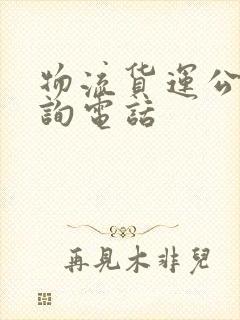 物流货運公
詢電話
再見木非兒